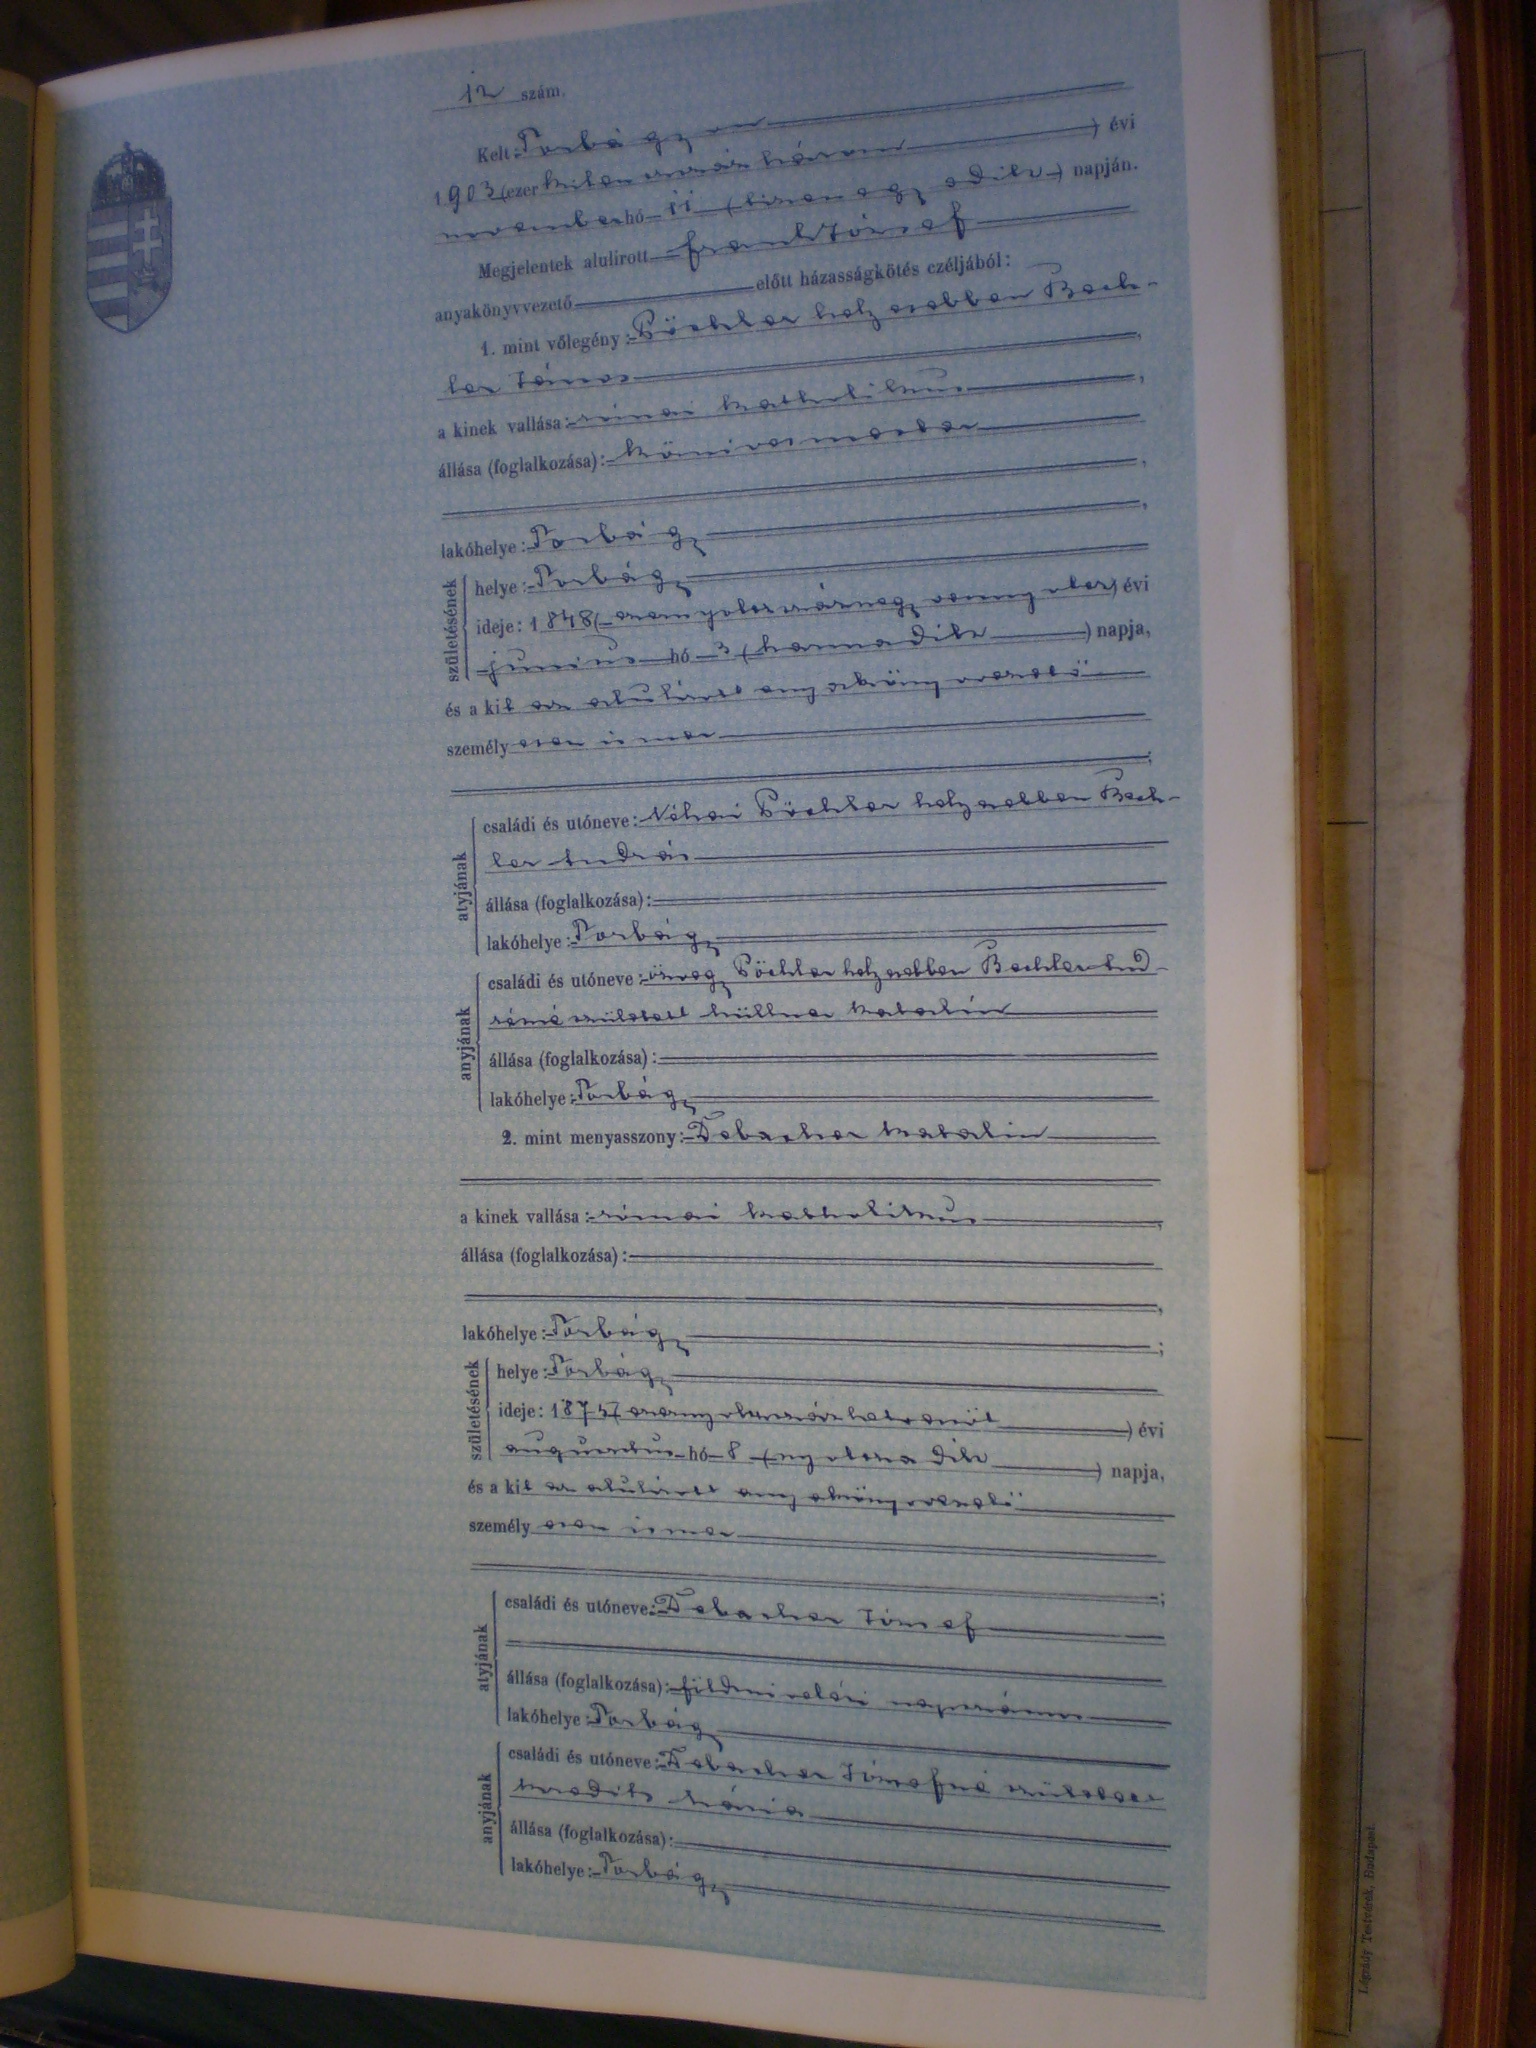 12 szám.
Kelt: Torbágyon
1903 (ezer kilenczszáz három) évi
november hó 11 (tizenegyedik) napján.
Megjelentek alulirott Frank József
anyakönyvvezető előtt házasságkötés czéljából:
1. mint vőlegény: Pöchler helyesebben Bech-
ler János
a kinek vallása: római katholikus,
állása (foglalkozása): kőmivesmester
lakóhelye: Torbágy,
születésének
helye: Torbágy
ideje: 1848 (ezernyolczszáznegyvennyolcz) évi
junius hó 3 (harmadik) napja,
és a kit az alulirott anyakönyvvezető
személyesen ismer;
atyjának
családi és utóneve: Néhai Pöchler helyesebben Bech-
ler András
állása (foglalkozása):
lakóhelye: Torbágy
anyjának
családi és utóneve: özvegy Pöchler helyesebben Bechler And-
rásné született Katalin
állása (foglalkozása):
lakóhelye: Torbágy
2. mint menyasszony: Katalin
a kinek vallása: római katholikus,
állása (foglalkozása):
lakóhelye: Torbágy;
születésének
helye: Torbágy
ideje: 1875 (ezernyolczszázhetvenöt) évi
augusztus hó 8 (nyolczadik) napja,
és a kit az alulirott anyakönyvvezető
személyesen ismer;
atyjának
családi és utóneve: József
állása (foglalkozása): földmivelési napszámos
lakóhelye: Torbágy
anyjának
családi és utóneve: Józsefné született
Mária
állása (foglalkozása):
lakóhelye: Torbágy
Légrády Testvérek, Budapest.